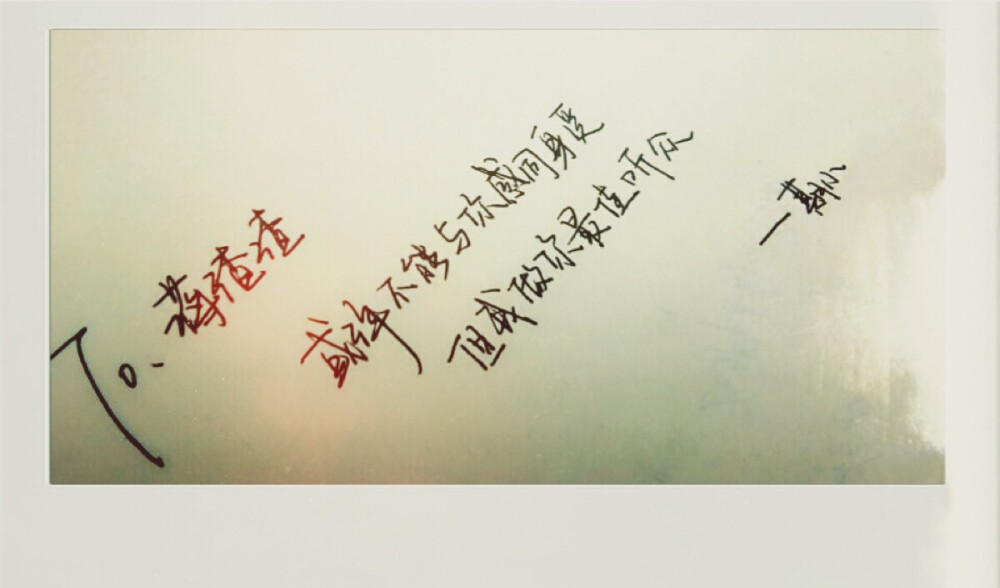 To. 蒋渣渣
或许不能与你感同身受
但我做你最佳听众